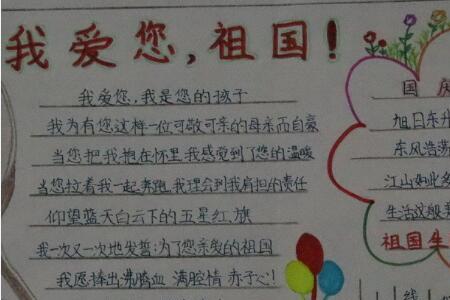 我爱您,祖国!
我爱您,我是您的孩子
我为有您这样一位可敬可亲的母亲而自豪
当您把我抱在怀里我感觉到了您的温暖
当您拉着我一起奔跑,我理会到我肩担的责任
仰望蓝天白云下的五星红旗
我一次又一次地发誓:为了您亲爱的祖国
我愿捧出沸腾血 满腔情 赤子心!
国庆
旭日东升
东风浩荡
江山如此多
生活这般
祖国生
线